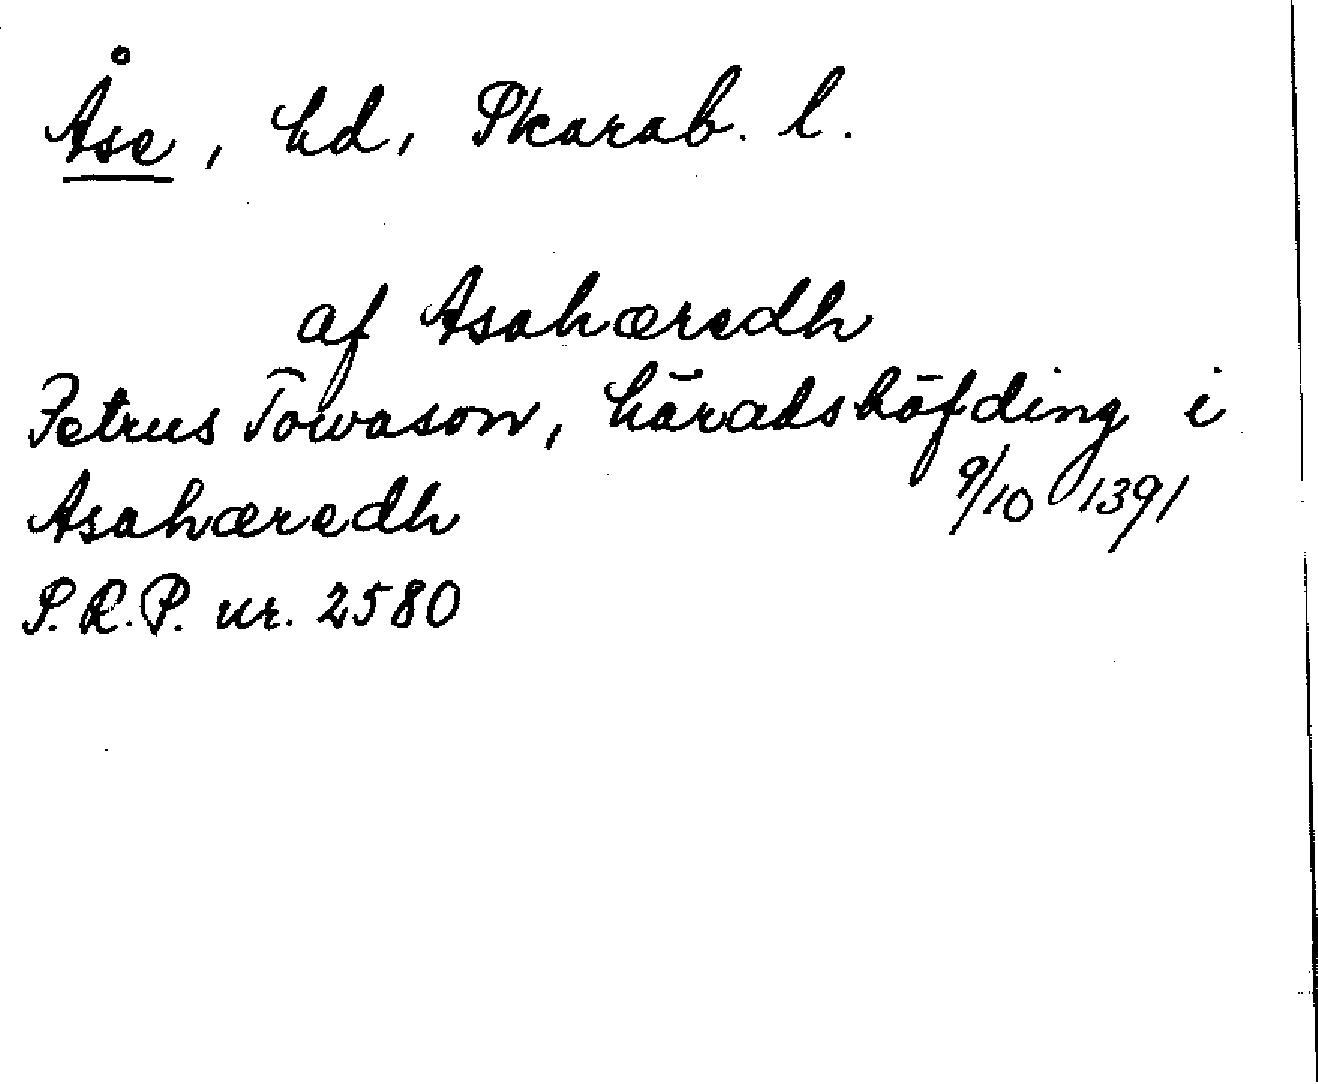 Åse, hd, Skarab. l.
af Asahæredh
Petrus Towason, häradshöfding i
Asahæredh 9/10 1391
P.R.P. nr. 2580